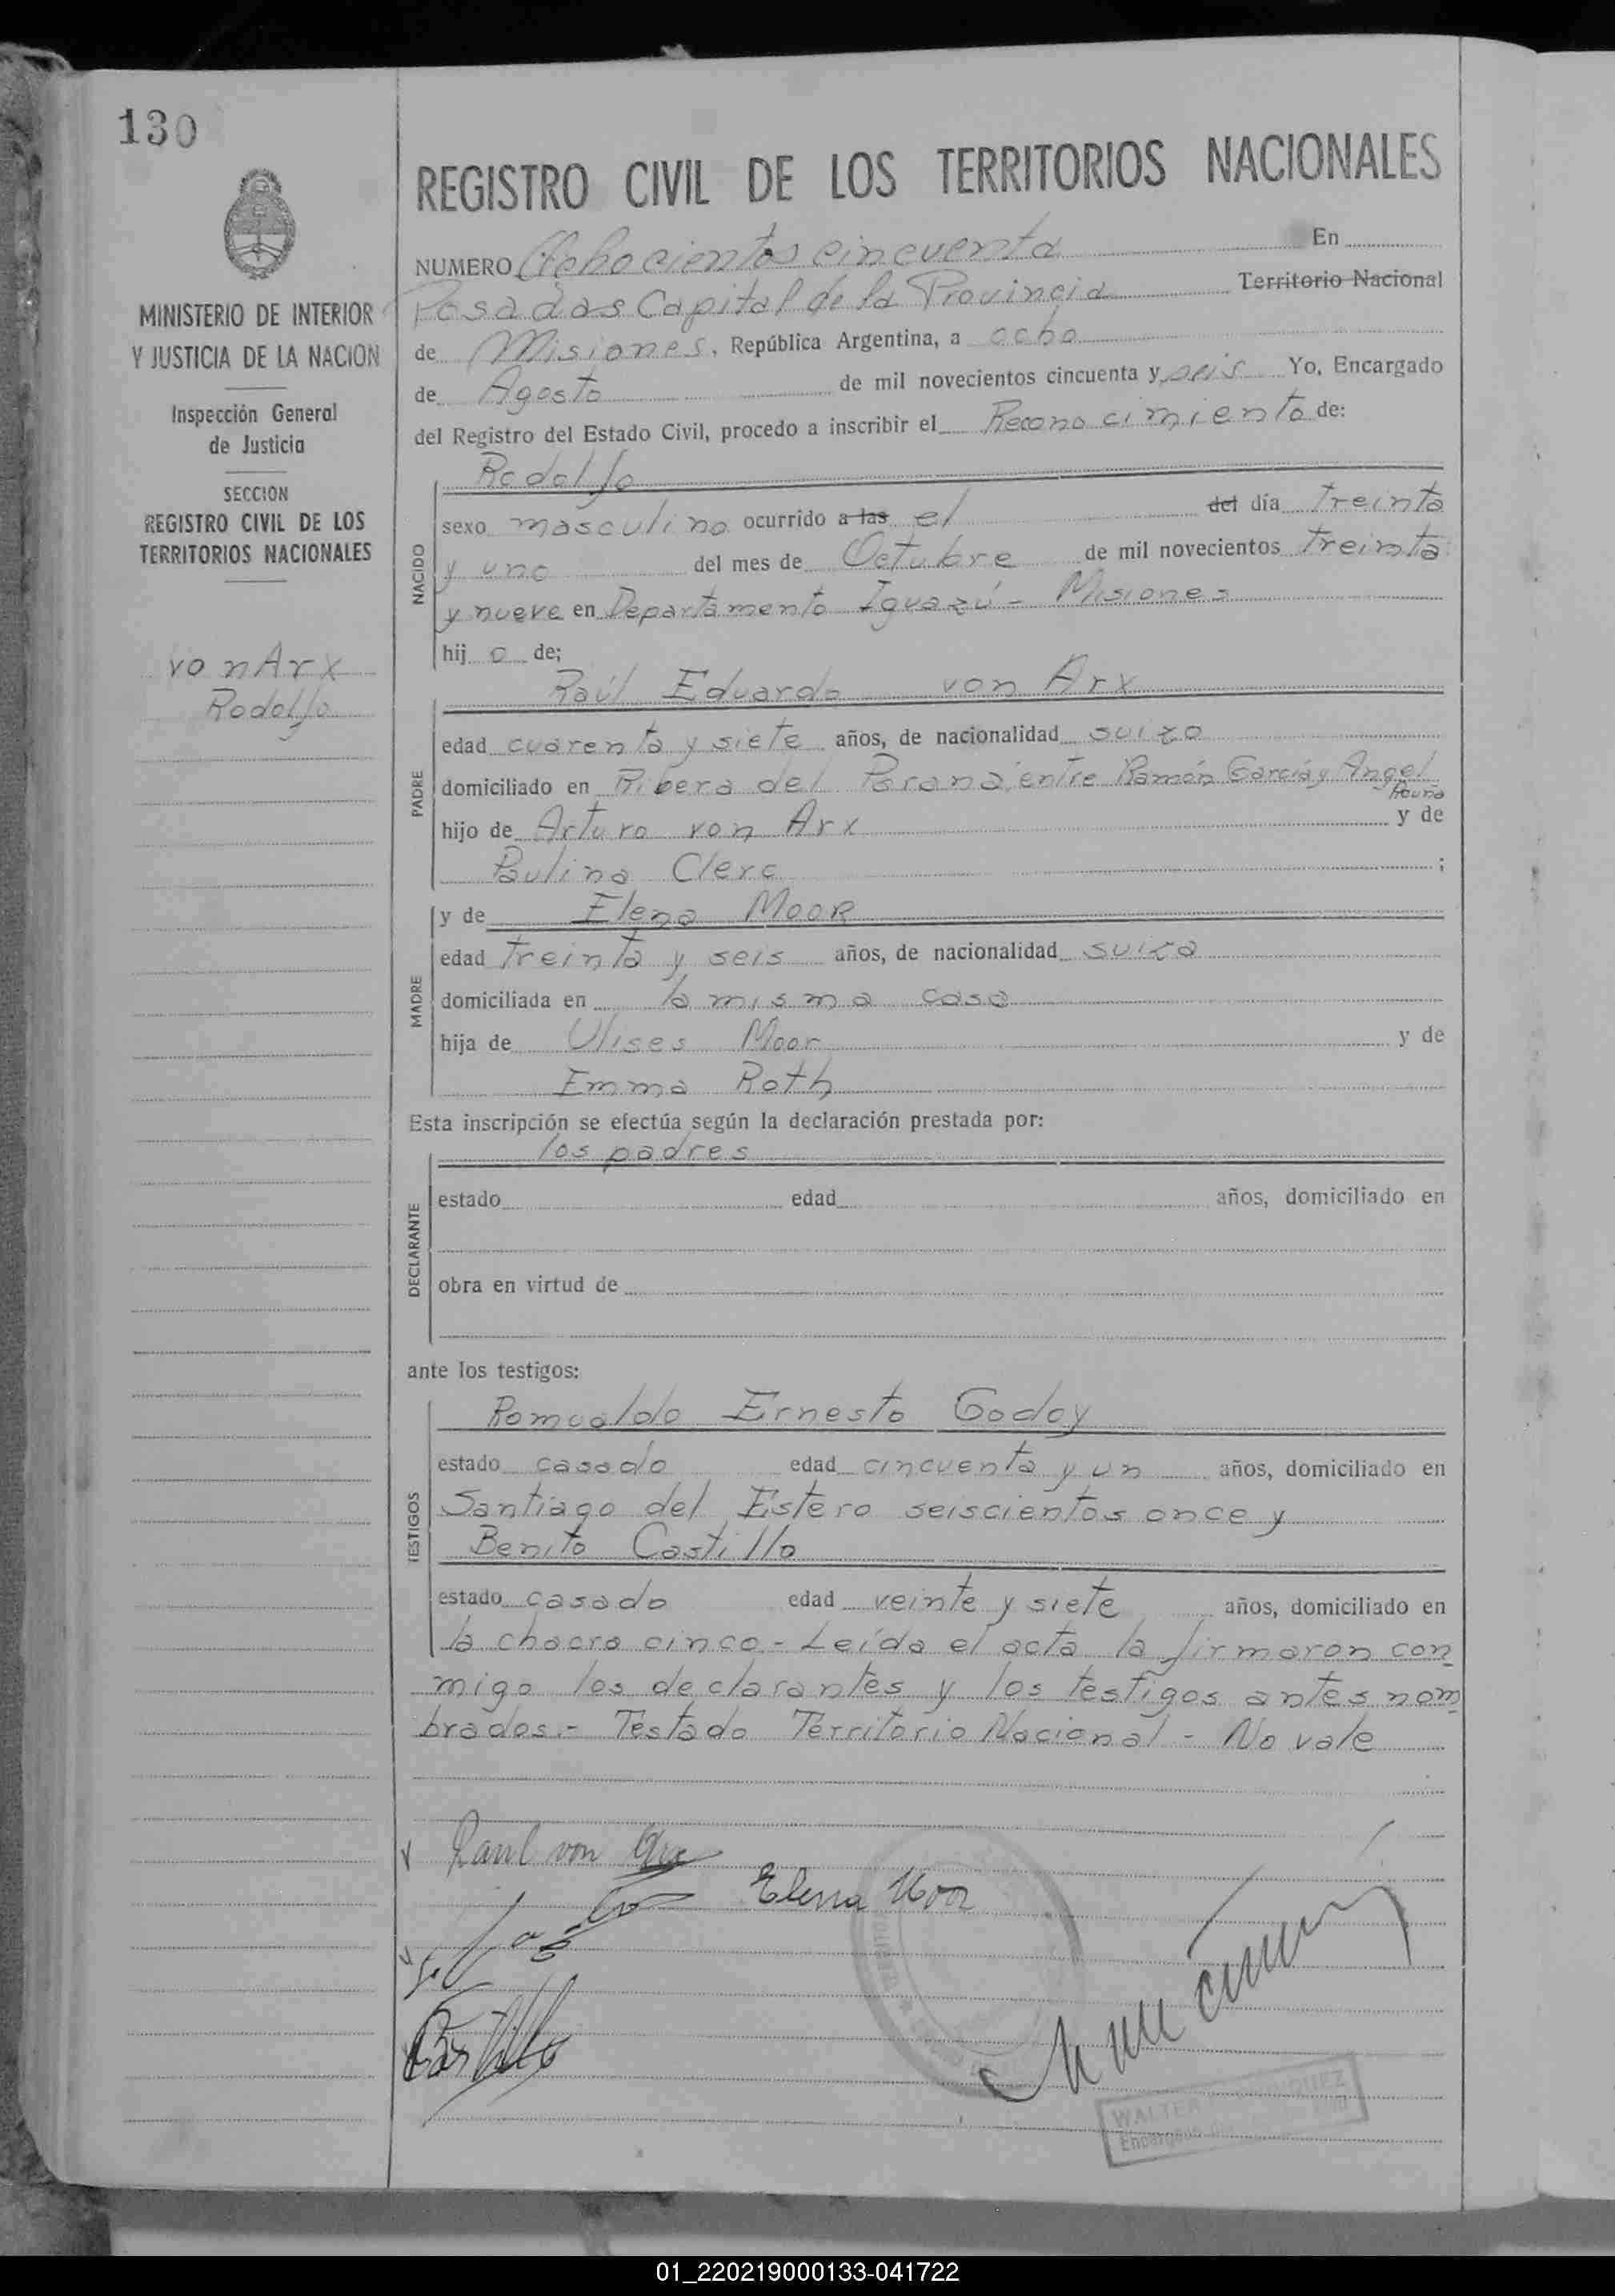 130
REGISTRO CIVIL DE LOS TERRITORIOS NACIONALES
MINISTERIO DE INTERIOR
Y JUSTICIA DE LA NACION
Inspección General
de Justicia
SECCION
REGISTRO CIVIL DE LOS
TERRITORIOS NACIONALES
von Arx
Rodolfo
NUMERO Ochocientos cincuenta En
Posadas Capital de la Provincia Territorio Nacional
de Misiones, República Argentina, a ocho
de Agosto de mil novecientos cincuenta y seis Yo, Encargado
del Registro del Estado Civil, procedo a inscribir el Reconocimiento de:
NACIDO
Rodolfo
sexo masculino ocurrido a las el del día treinta
y uno del mes de Octubre de mil novecientos treinta
y nueve en Departamento Iguazú - Misiones
hijo de;
PADRE
Raúl Eduardo von Arx
edad cuarenta y siete años, de nacionalidad suizo
domiciliado en Ribera del Paraná, entre Ramón García y Angel
Acuña
hijo de Arturo von Arx y de
Paulina Clerc ;
MADRE
y de Elena Moor
edad treinta y seis años, de nacionalidad suiza
domiciliada en la misma casa
hija de Ulises Moor y de
Emma Roth
Esta inscripción se efectúa según la declaración prestada por:
DECLARANTE
los padres
estado edad años, domiciliado en
obra en virtud de
ante los testigos:
TESTIGOS
Romualdo Ernesto Godoy
estado casado edad cincuenta y un años, domiciliado en
Santiago del Estero seiscientos once y
Benito Castillo
estado casado edad veinte y siete años, domiciliado en
la chacra cinco - Leída el acta la firmaron con
migo los declarantes y los testigos antes nom
brados.- Testado Territorio Nacional - No vale
Raul von Arx
Elena Moor
Castillo
WALTER
Encargado
01_220219000133-041722